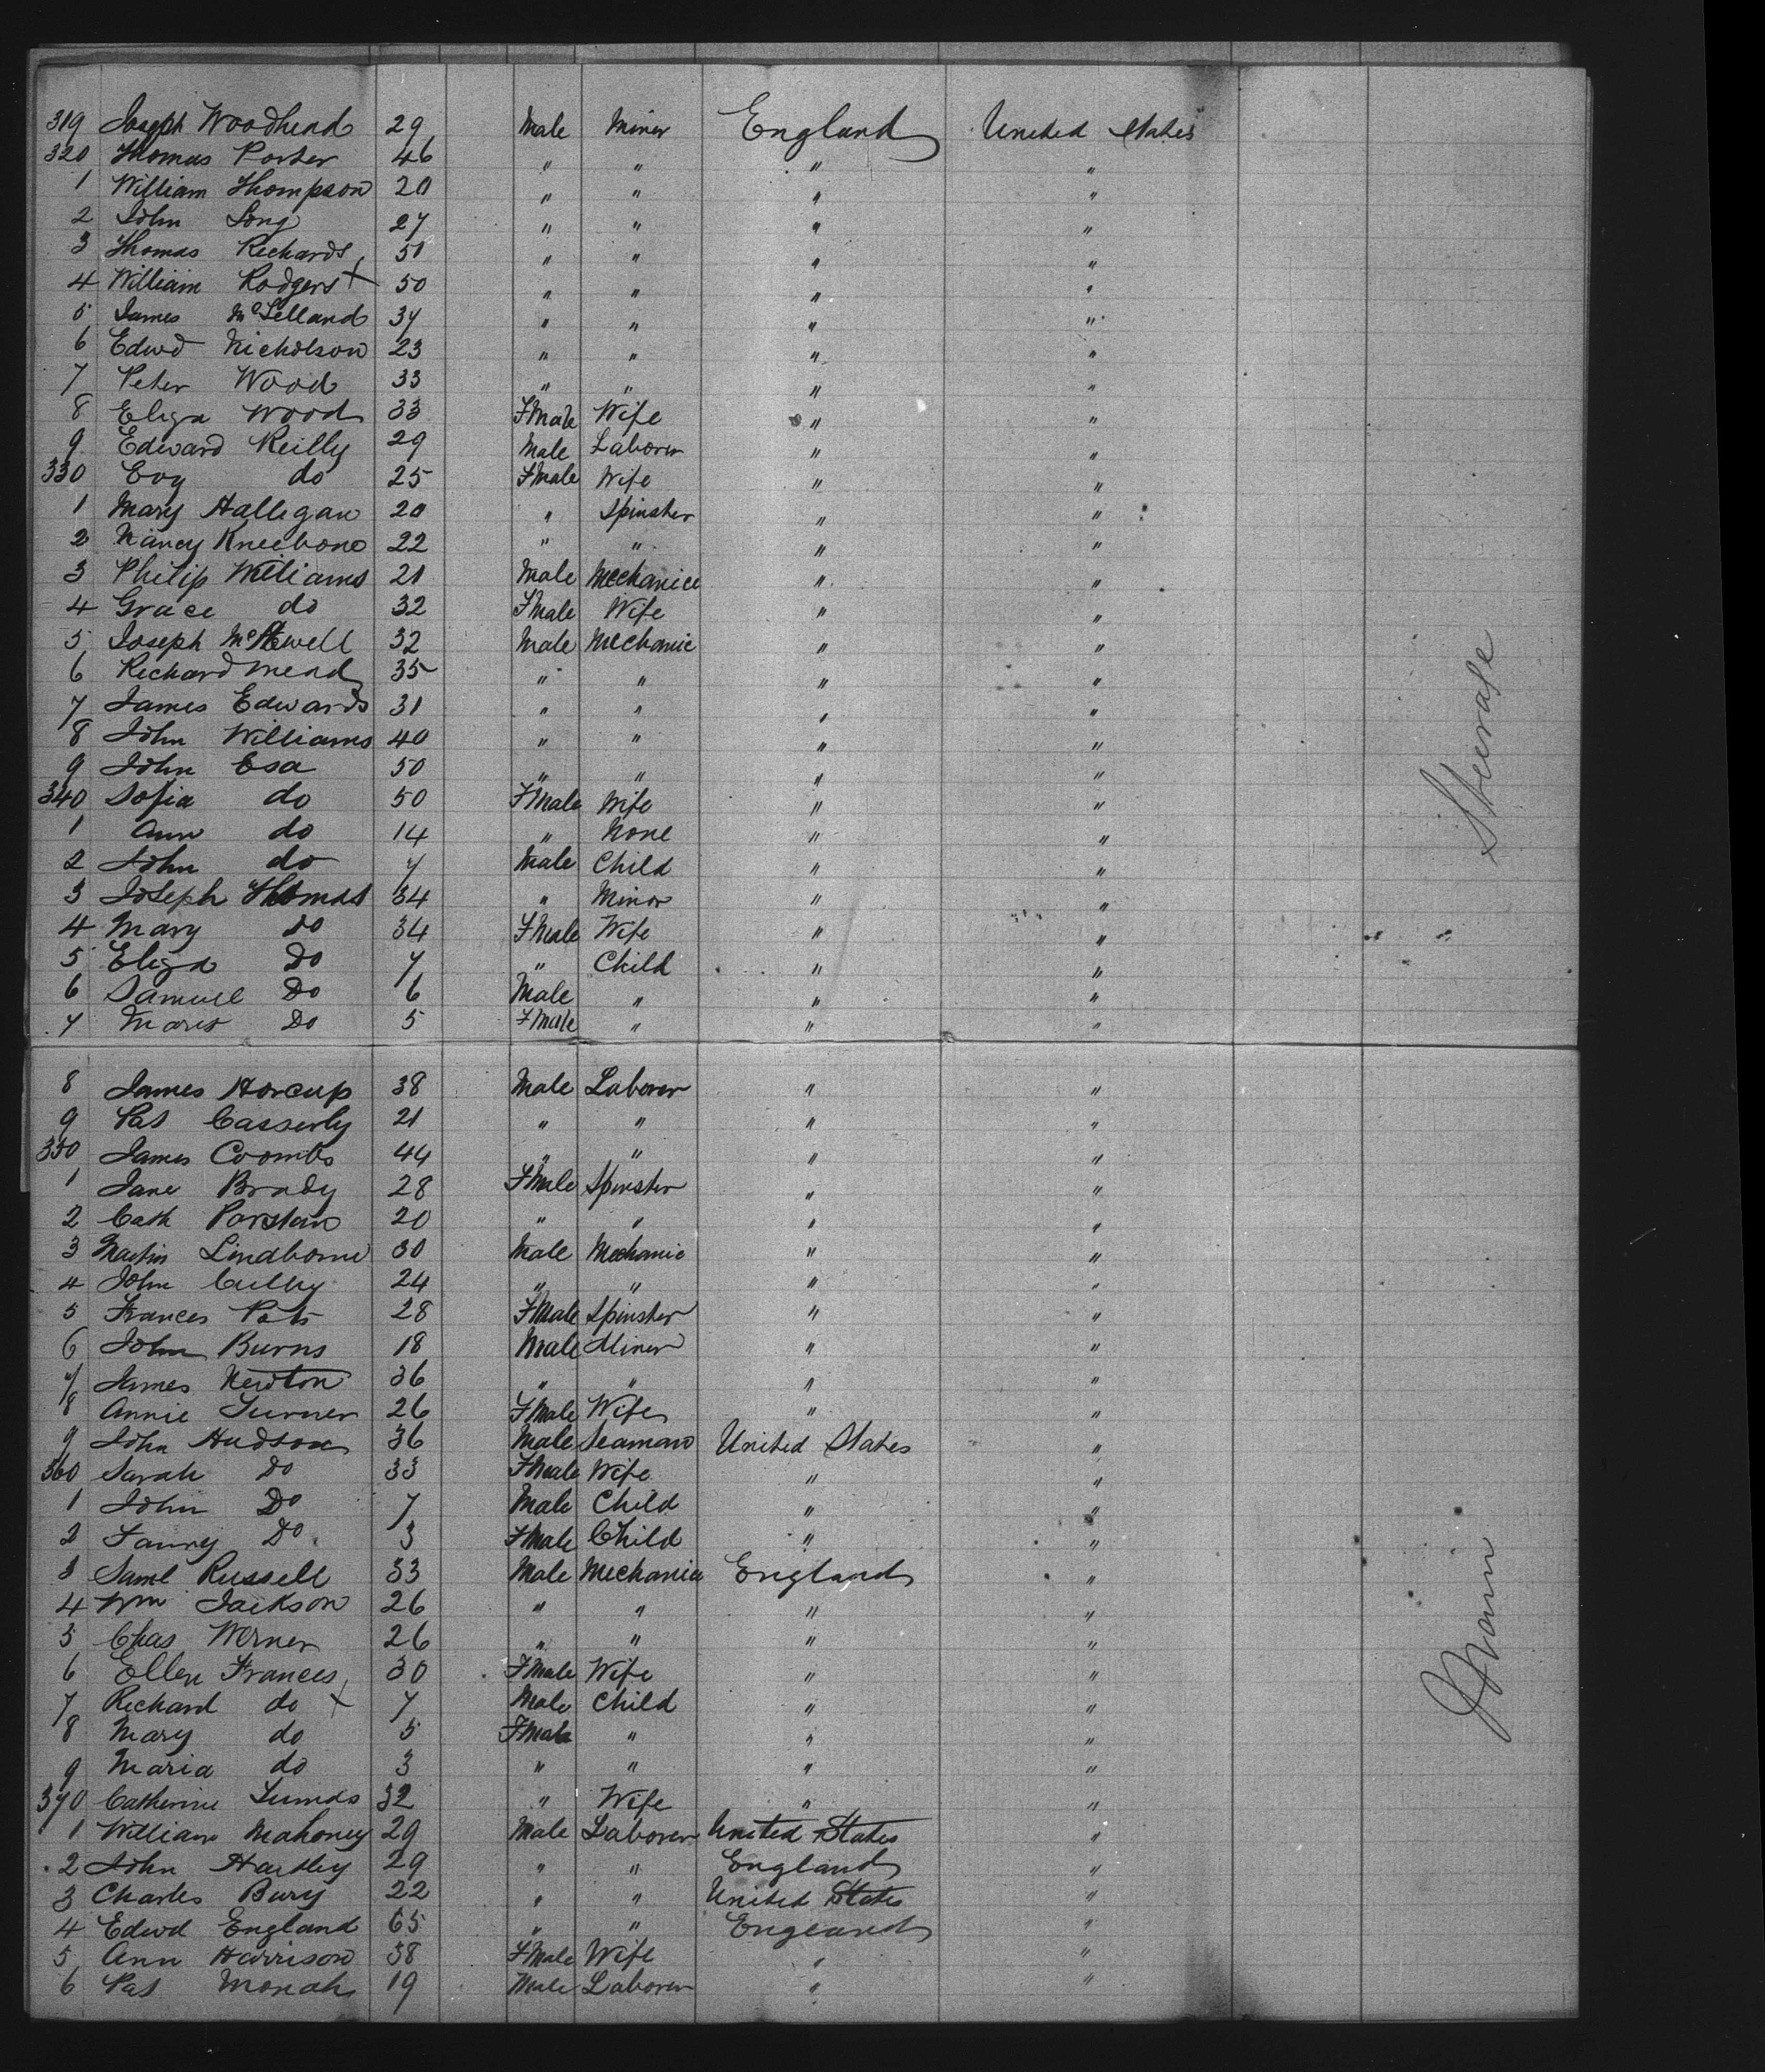 319 Joseph Woodhead 29 Male Miner England United States
320 Thomas Porter 46 " " " "
1 William Thompson 20 " " " "
2 John Long 27 " " " "
3 Thomas Richards 50 " " " "
4 William Rodgers + 50 " " " "
5 James McLelland 34 " " " "
6 Edwd Nicholson 23 " " " "
7 Peter Wood 33 " " " "
8 Eliza Wood 33 FMale Wife " "
9 Edward Reilly 29 Male Laborer " "
330 Evy do 25 FMale Wife " "
1 Mary Hallegan 20 " Spinster " "
2 Nancy Kneebone 22 " " " "
3 Philip Williams 21 Male Mechanice " "
4 Grace do 32 FMale Wife " "
5 Joseph 32 Male Mechanic " "
6 Richard Mead 35 " " " "
7 James Edwards 31 " " " "
8 John Williams 40 " " " "
9 John Esa 50 " " " "
340 Sofia do 50 FMale Wife " "
1 Ann do 14 " None " "
2 John do 7 Male Child " "
3 Joseph Thomas 34 " Minor " "
4 Mary Do 34 FMale Wife " "
5 Eliza Do 7 " Child " "
6 Samuel Do 6 Male " " "
7 Do 5 FMale " " "
8 James Horcup 38 Male Laborer " "
9 Pat Casserly 21 " " " "
350 James Coombs 44 " " " "
1 Jane Brady 28 FMale Spinster " "
2 Cath 20 " " " "
3 Martin Lindborne 30 Male Mechanic " "
4 John Culley 24 " " " "
5 Frances 28 FMale Spinster " "
6 John Burns 18 Male Miner " "
7 James Newton 36 " " " "
8 Annie Turner 26 FMale Wife " "
9 John Hudson 36 Male Seaman United States "
360 Sarah Do 33 FMale Wife " "
1 John Do 7 Male Child " "
2 Fanny Do 3 FMale Child " "
3 Saml Russell 33 Male Mechanic England "
4 Wm Jackson 26 " " " "
5 Chas Werner 26 " " " "
6 Ellen Frances 30 FMale Wife " "
7 Richard do + 7 Male Child " "
8 Mary do 5 FMale " " "
9 Maria do 3 " " " "
370 Catherine 32 " Wife " "
1 William Mahoney 29 Male Laborer United States "
2 John Hartley 29 " " England "
3 Charles Bury 22 " " United States "
4 Edwd England 65 " " England "
5 Ann Harrison 38 FMale Wife " "
6 Pat Monah 19 Male Laborer " "
Steerage